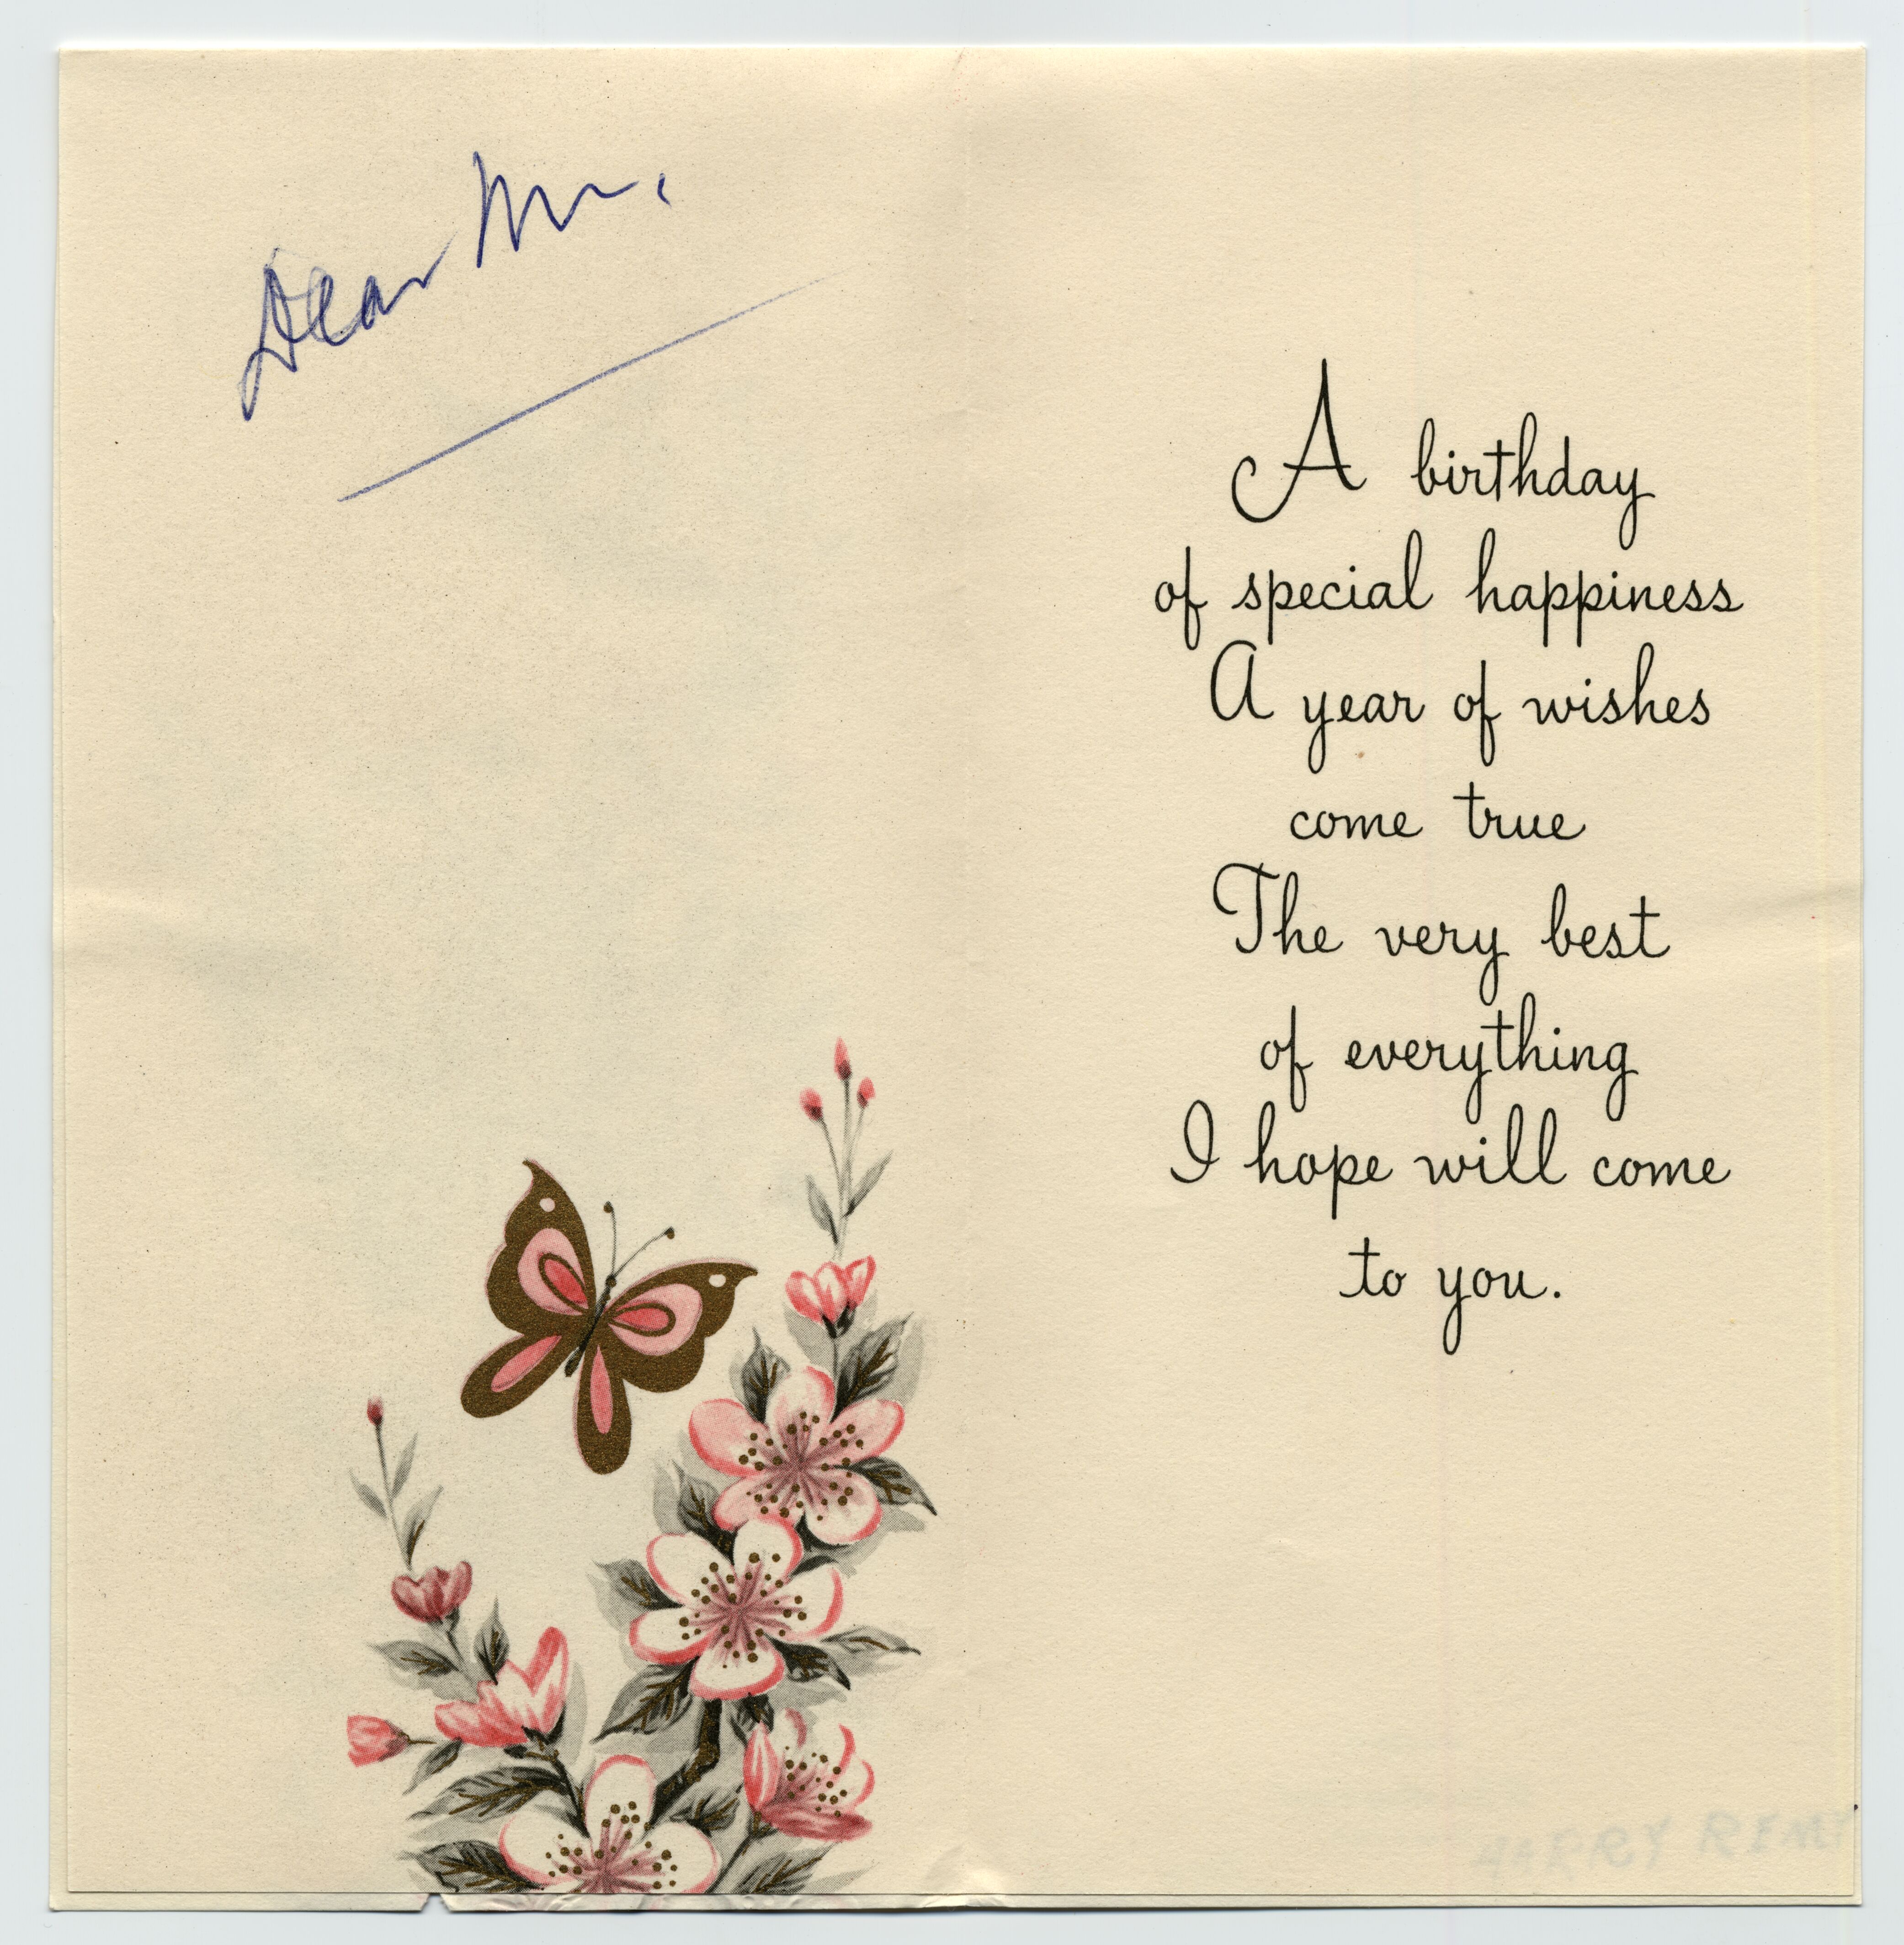 Dear Mr.
A birthday
of special happiness
A year of wishes
come true
The very best
of everything
I hope will come
to you.
HARRY REMY